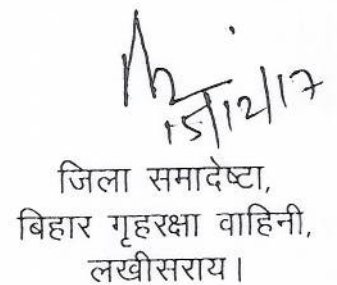 15/12/17
जिला समादेष्टा,
बिहार गृहरक्षा वाहिनी,
लखीसराय।